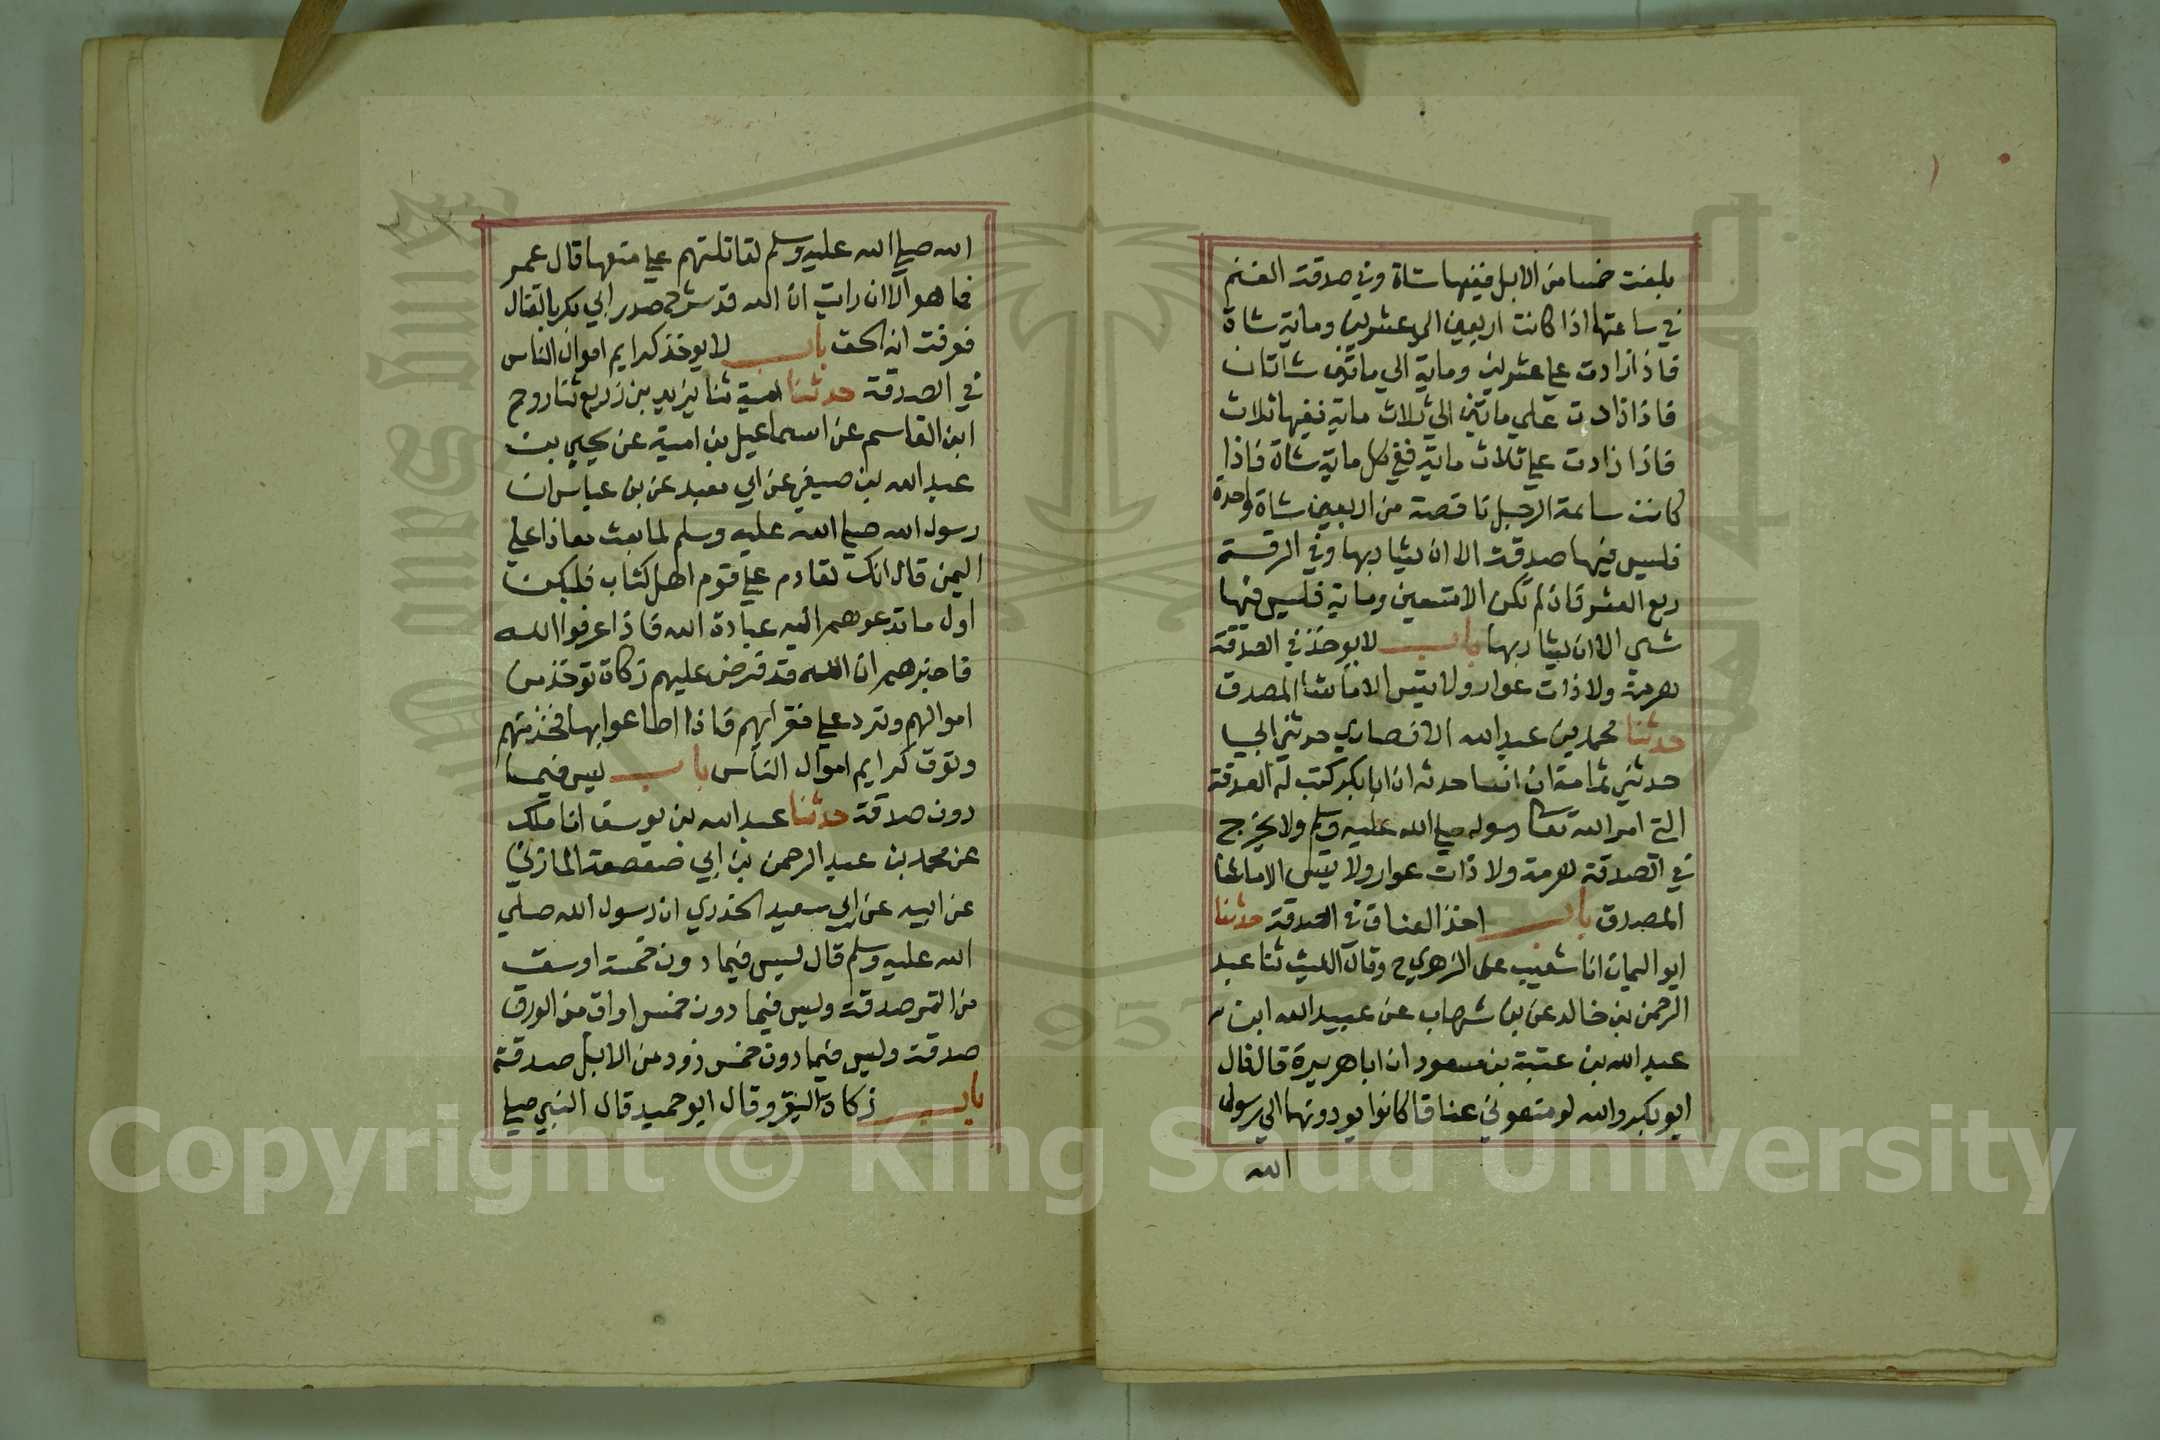 بلغت خمسا من الابل ففيها شاة وفي صدقة الغنم
في سائمتها اذا كانت اربعين الي عشرين وماية شاة
فاذا زادت علي عشرين وماية الي مائتين شاتان
فاذا زادت علي مائتين الي ثلاث ماية ففيها ثلاث
فاذا زادت علي ثلاث ماية ففي كل ماية شاة فاذا
كانت سائمة الرجل ناقصة من اربعين شاة واحدة
فليس فيها صدقة الا ان يشا ربها وفي الرقة
ربع العشر فان لم تكن الا تسعين وماية فليس فيها
شي الا ان يشا ربها باب لا يوخذ في الصدقة
هرمة ولا ذات عوار ولا تيس الا ما يشا المصدق
حدثنا محمد بن عبد الله الانصاري حدثني ابي
حدثني ثمامة ان انسا حدثه ان ابا بكر كتب له الصدقة
التي امر الله تعالى رسوله صلي الله عليه وسلم ولا يخرج
في الصدقة هرمة ولا ذات عوار ولا تيس الا ما شا
المصدق باب اخذ العناق في الصدقة حدثنا
ابو اليمان انا شعيب عن الزهري ح وقال الليث ثنا عبد
الرحمن بن خالد عن بن شهاب عن عبيد الله ابن
عبد الله بن عتبة بن مسعود ان ابا هريرة قال قال
ابو بكر والله لو منعوني عناقا كانوا يودونها الي رسول
الله
الله صلي الله عليه وسلم لقاتلتهم علي منعها قال عمر
فما هو الا ان رايت ان الله قد شرح صدر ابي بكر بالقتال
فعرفت انه الحق باب لا يوخذ كرايم اموال الناس
في الصدقة حدثنا امية ثنا يزيد بن زريع ثنا روح
ابن القاسم عن اسماعيل بن امية عن يحيي بن
عبد الله بن صيفي عن ابي معبد عن بن عباس ان
رسول الله صلي الله عليه وسلم لما بعث معاذا علي
اليمن قال انك تقادم علي قوم اهل كتاب فليكن
اول ما تدعوهم اليه عبادة الله فاذا عرفوا الله
فاخبرهم ان الله قد فرض عليهم زكاة توخذ من
اموالهم وترد علي فقرايهم فاذا اطاعوا بها فخذ منهم
وتوق كرايم اموال الناس باب ليس فيما
دون صدقة حدثنا عبد الله بن يوسف انا ملك
عن محمد بن عبد الرحمن بن ابي صعصعة المازني
عن ابيه عن ابي سعيد الخدري ان رسول الله صلي
الله عليه وسلم قال ليس فيما دون خمسة اوسق
من التمر صدقة وليس فيما دون خمس اواق من الورق
صدقة وليس فيما دون خمس ذود من الابل صدقة
باب زكاة البقر وقال ابو حميد قال النبي صلي
Copyright © King Saud University